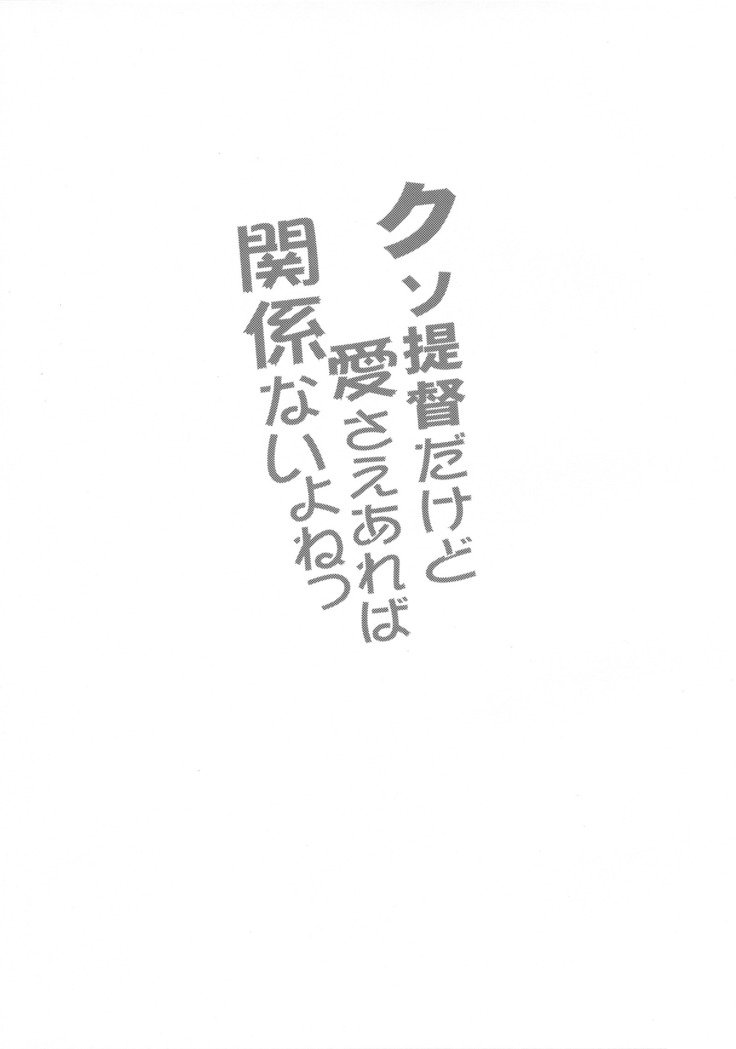 クソ提督だけど
愛さえあれば
関係ないよねっ